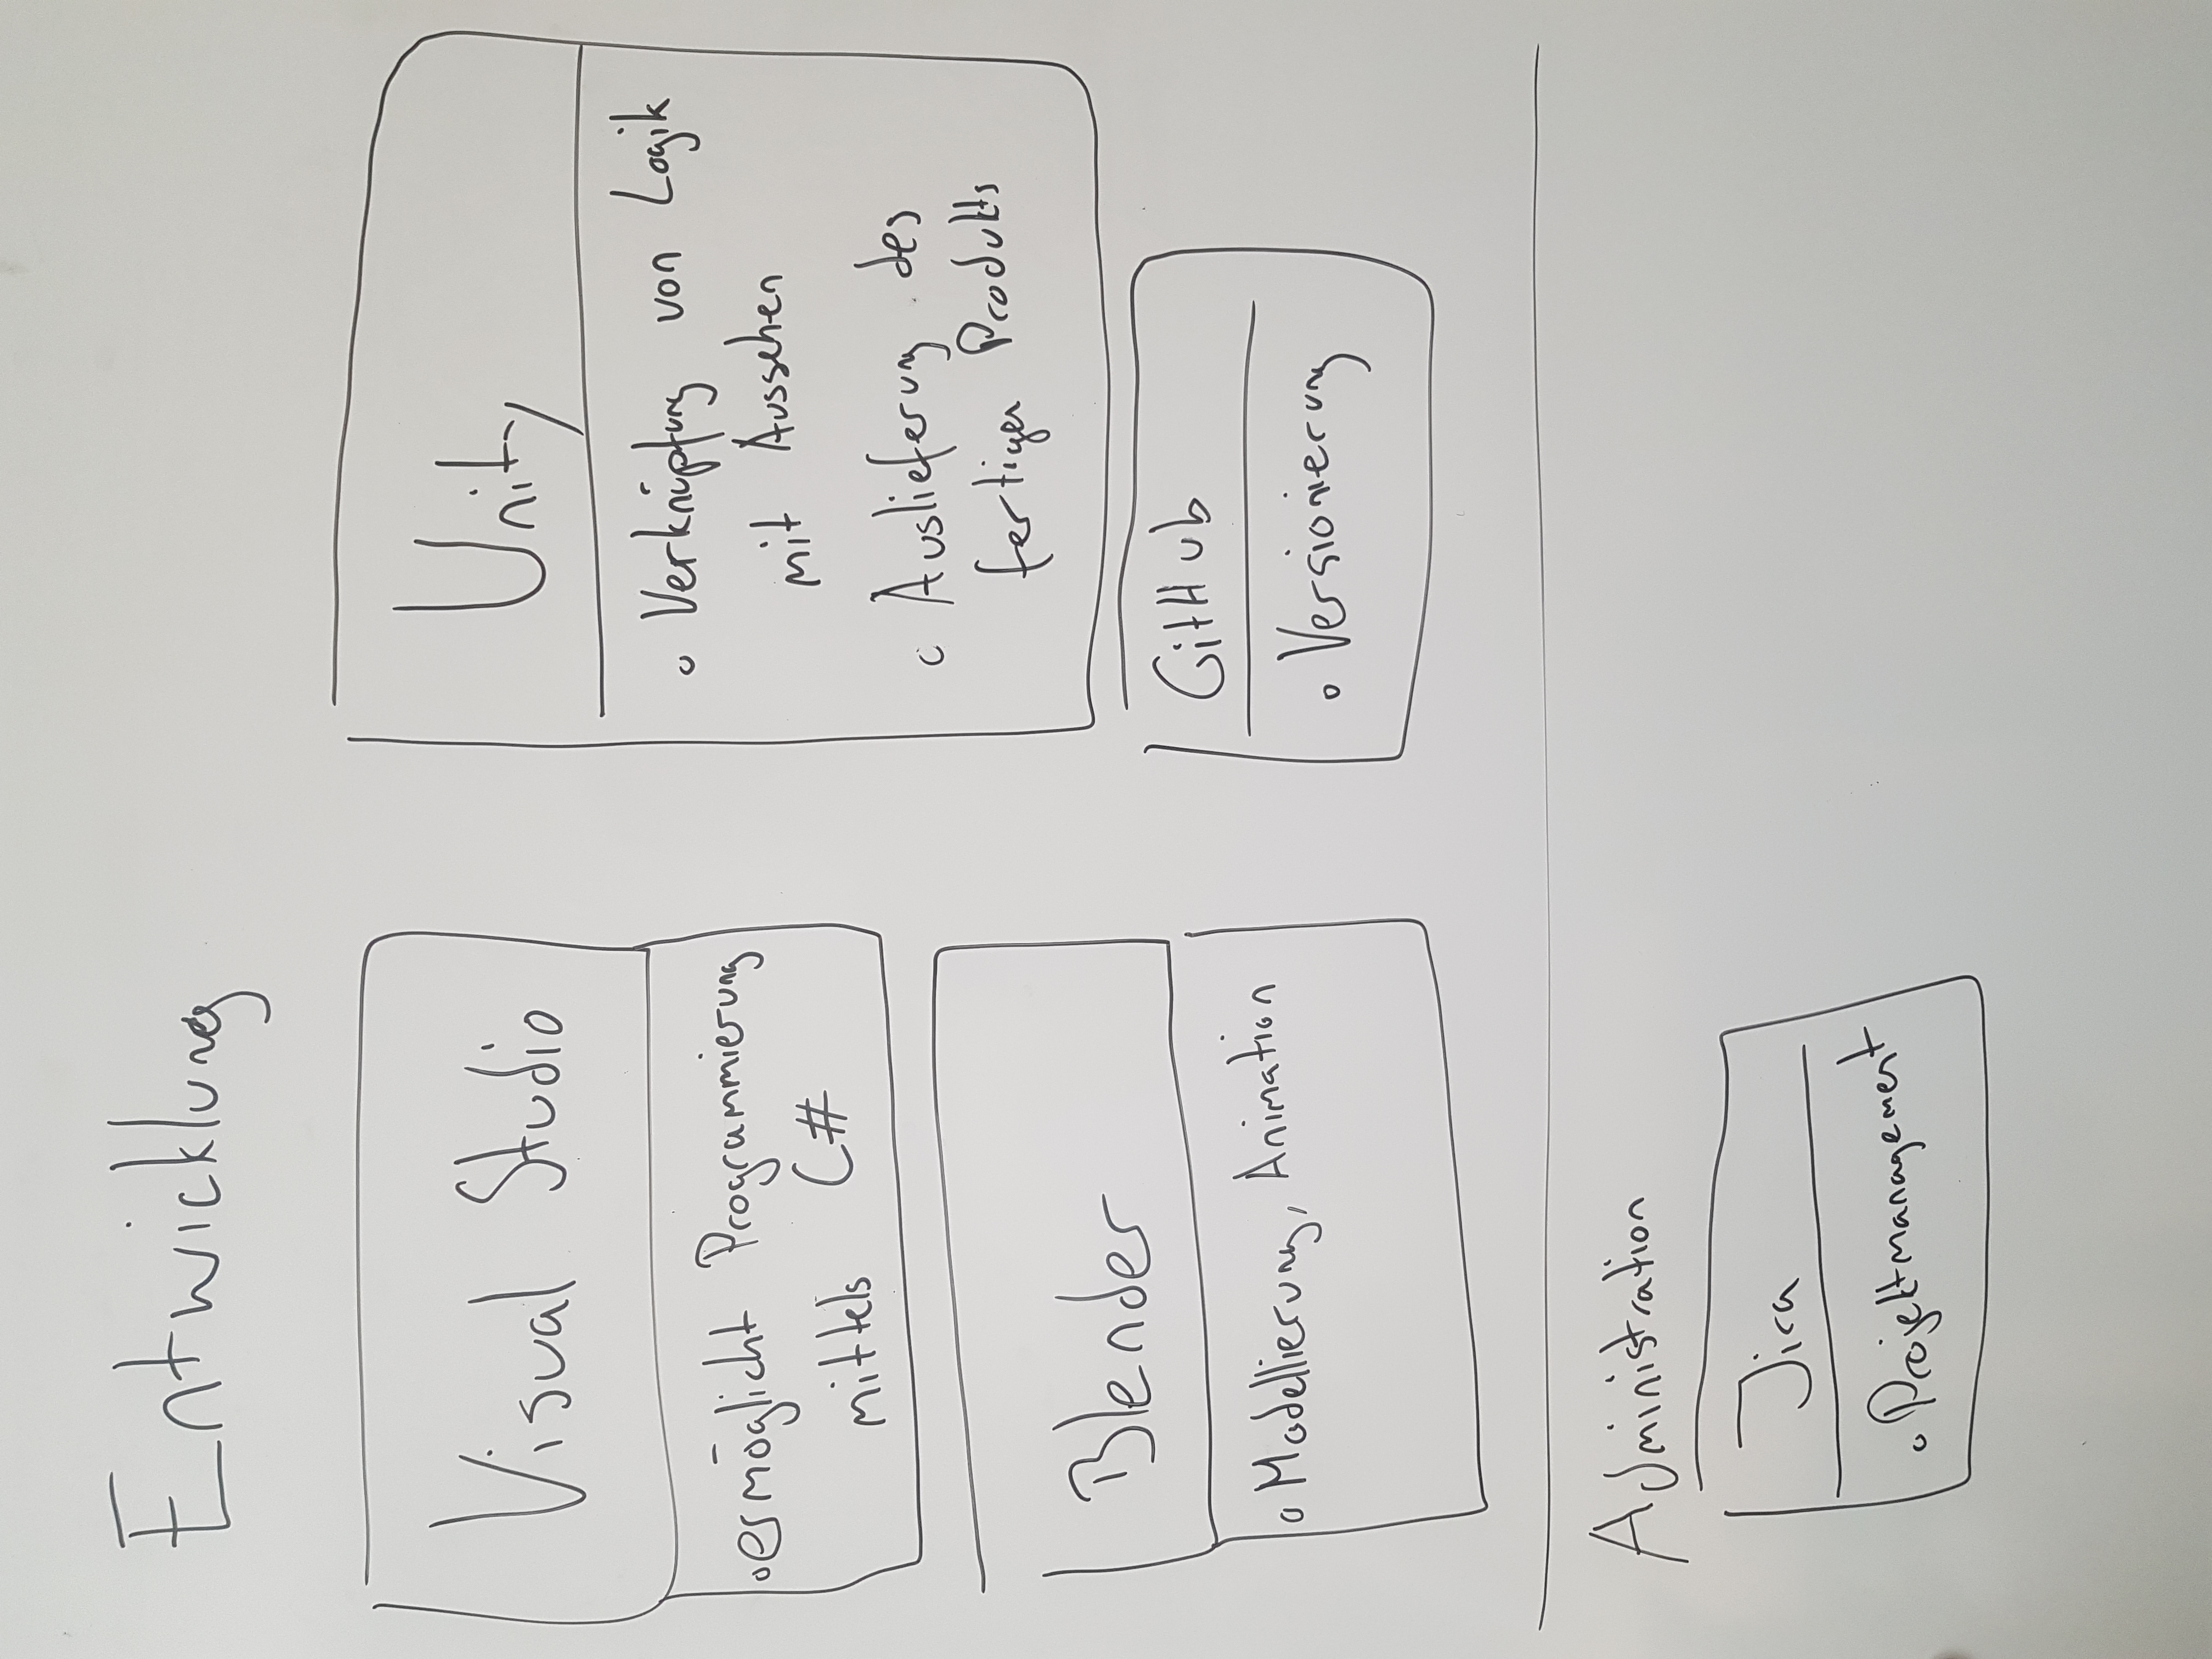 Entwicklung
Visual Studio
◦ ermöglicht Programmierung
mittels C#
Blender
◦ Modellierung, Animation
Unity
◦ Verknüpfung von Logik
mit Aussehen
◦ Auslieferung des
fertigen Produkts
GitHub
◦ Versionierung
Administration
Jira
◦ Projektmanagement